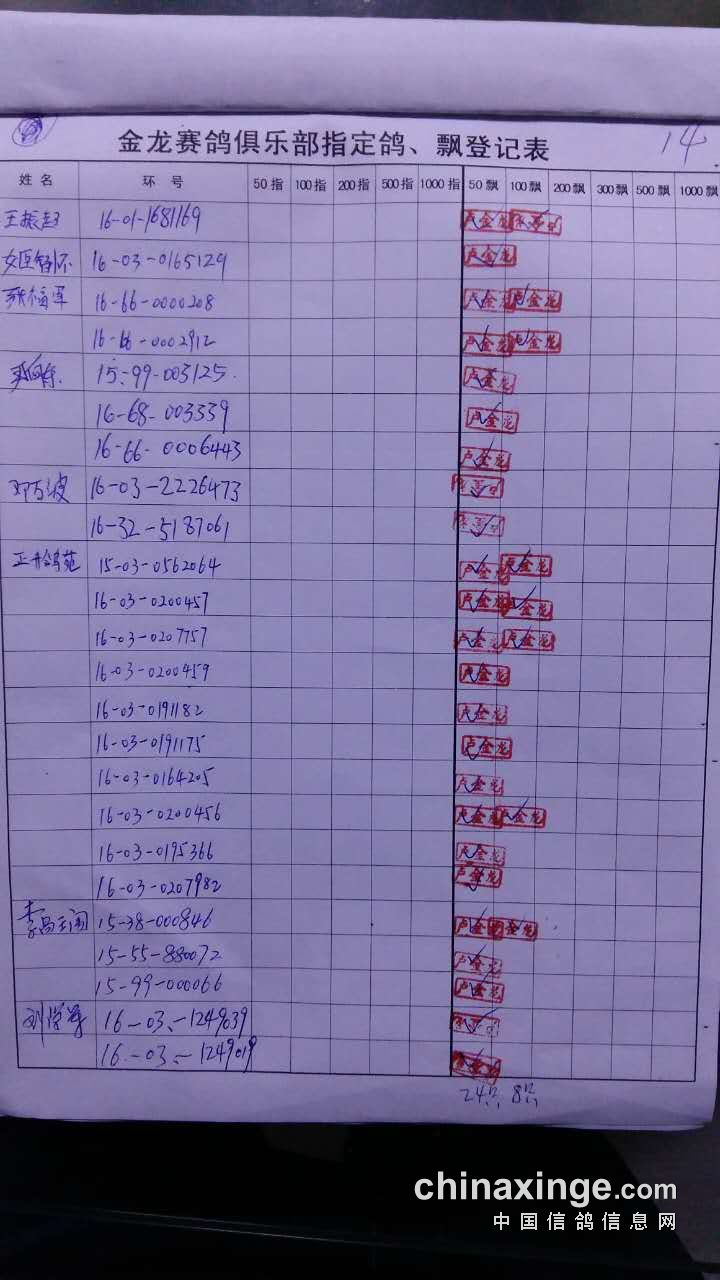 14
金龙赛鸽俱乐部指定鸽、飘登记表
姓名 环号 50指 100指 200指 500指 1000指 50飘 100飘 200飘 300飘 500飘 1000飘
16-01-1681169 卢金龙
16-03-0165129 卢金龙
张福军 16-66-0000208 卢金龙 卢金龙
16-66-0002912 卢金龙 卢金龙
15-99-003125 卢金龙
16-68-003339 卢金龙
16-66-0006443 卢金龙
邓万波 16-03-2226473
16-32-5187061
正升鸽苑 15-03-0562064 卢金龙 卢金龙
16-03-0200457 卢金龙 卢金龙
16-03-0207757 卢金龙 卢金龙
16-03-0200459 卢金龙
16-03-0191182 卢金龙
16-03-0191175 卢金龙
16-03-0164205 卢金龙
16-03-0200456 卢金龙 卢金龙
16-03-0195366 卢金龙
16-03-0207982 卢金龙
15-38-000846 卢金龙 卢金龙
15-55-880072 卢金龙
15-99-000066 卢金龙
16-03-1249039
16-03-1249019
24 8
chinaxinge.com
中国信鸽信息网